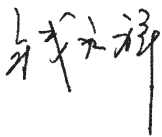 钱永祥